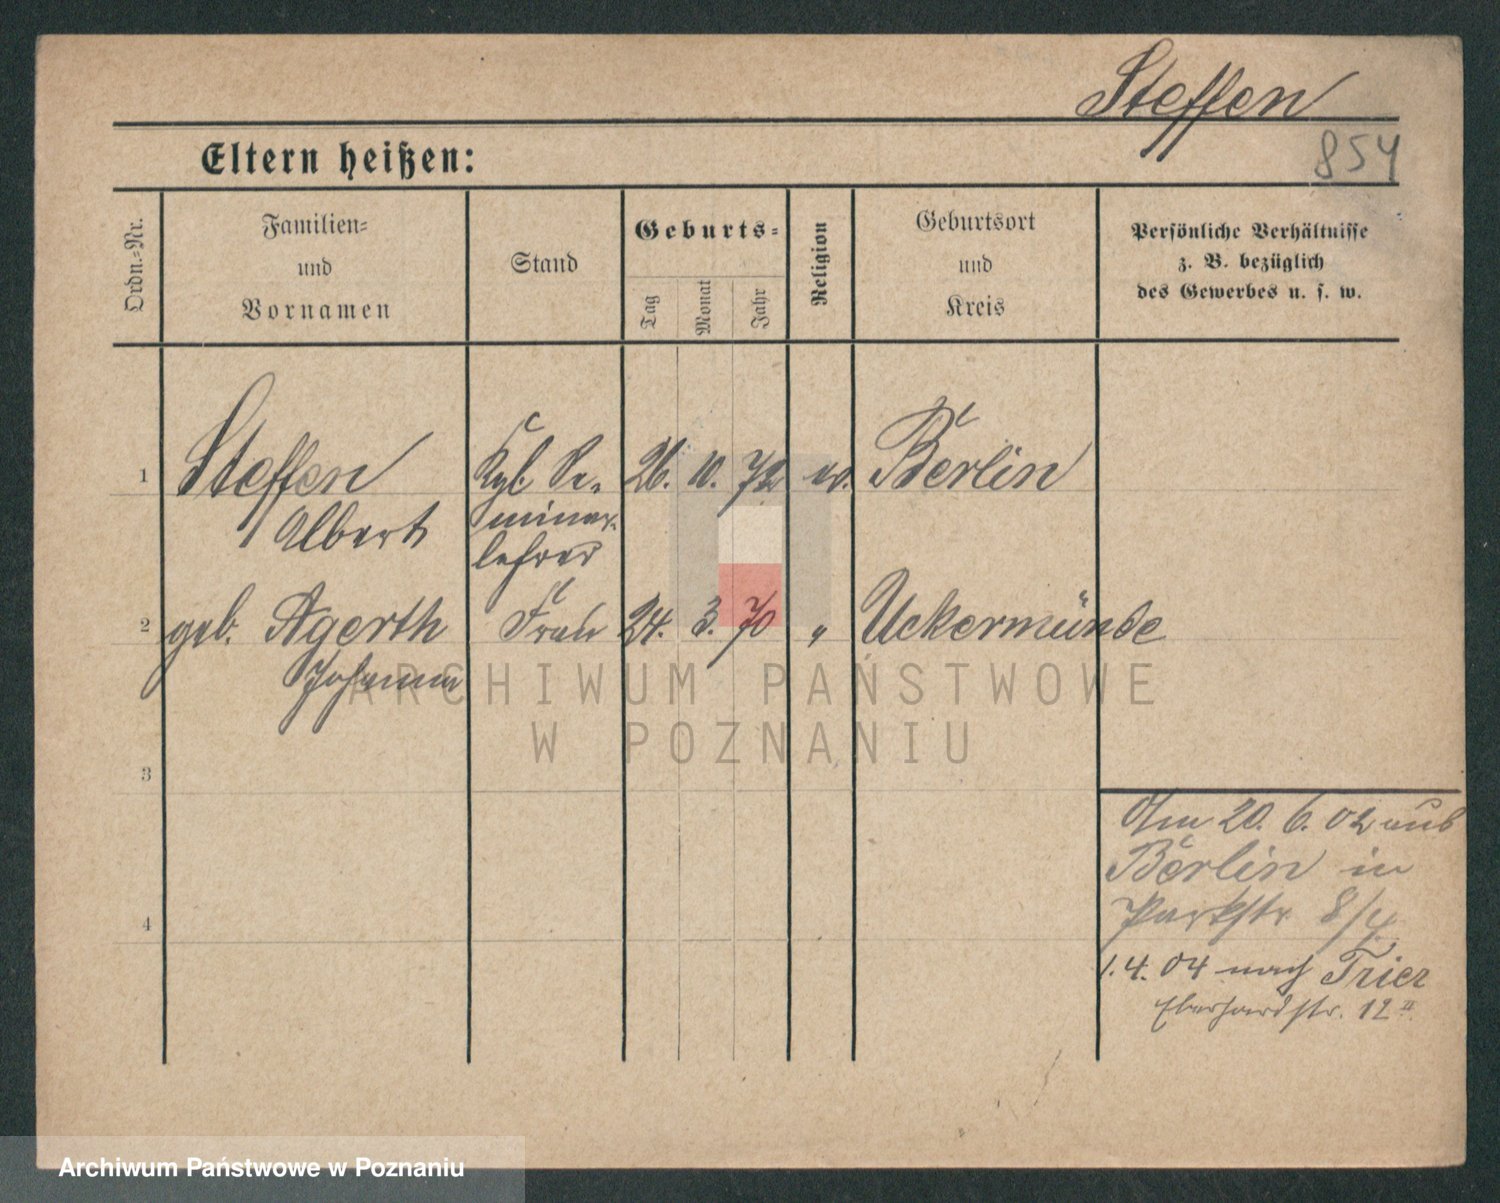 Steffen
854
Eltern heißen:
Ordn.-Nr.
Familien-
und
Vornamen
Stand
Geburts-
Tag
Monat
Jahr
Religion
Geburtsort
und
Kreis
Persönliche Verhältnisse
z. B. bezüglich
des Gewerbes u. s. w.
1 Steffen Kgl. Se- 26. 10. 72 ev. Berlin
Albert minar-
lehrer
2 geb. Agerth Frau 24. 3. 70 " Uckermünde
Johanna
ARCHIWUM PAŃSTWOWE
W POZNANIU
3
Am 20. 6. 02 aus
Berlin in
Parkstr 8/4
4
1. 4. 04 nach Trier
Eberhardstr. 12 II.
Archiwum Państwowe w Poznaniu